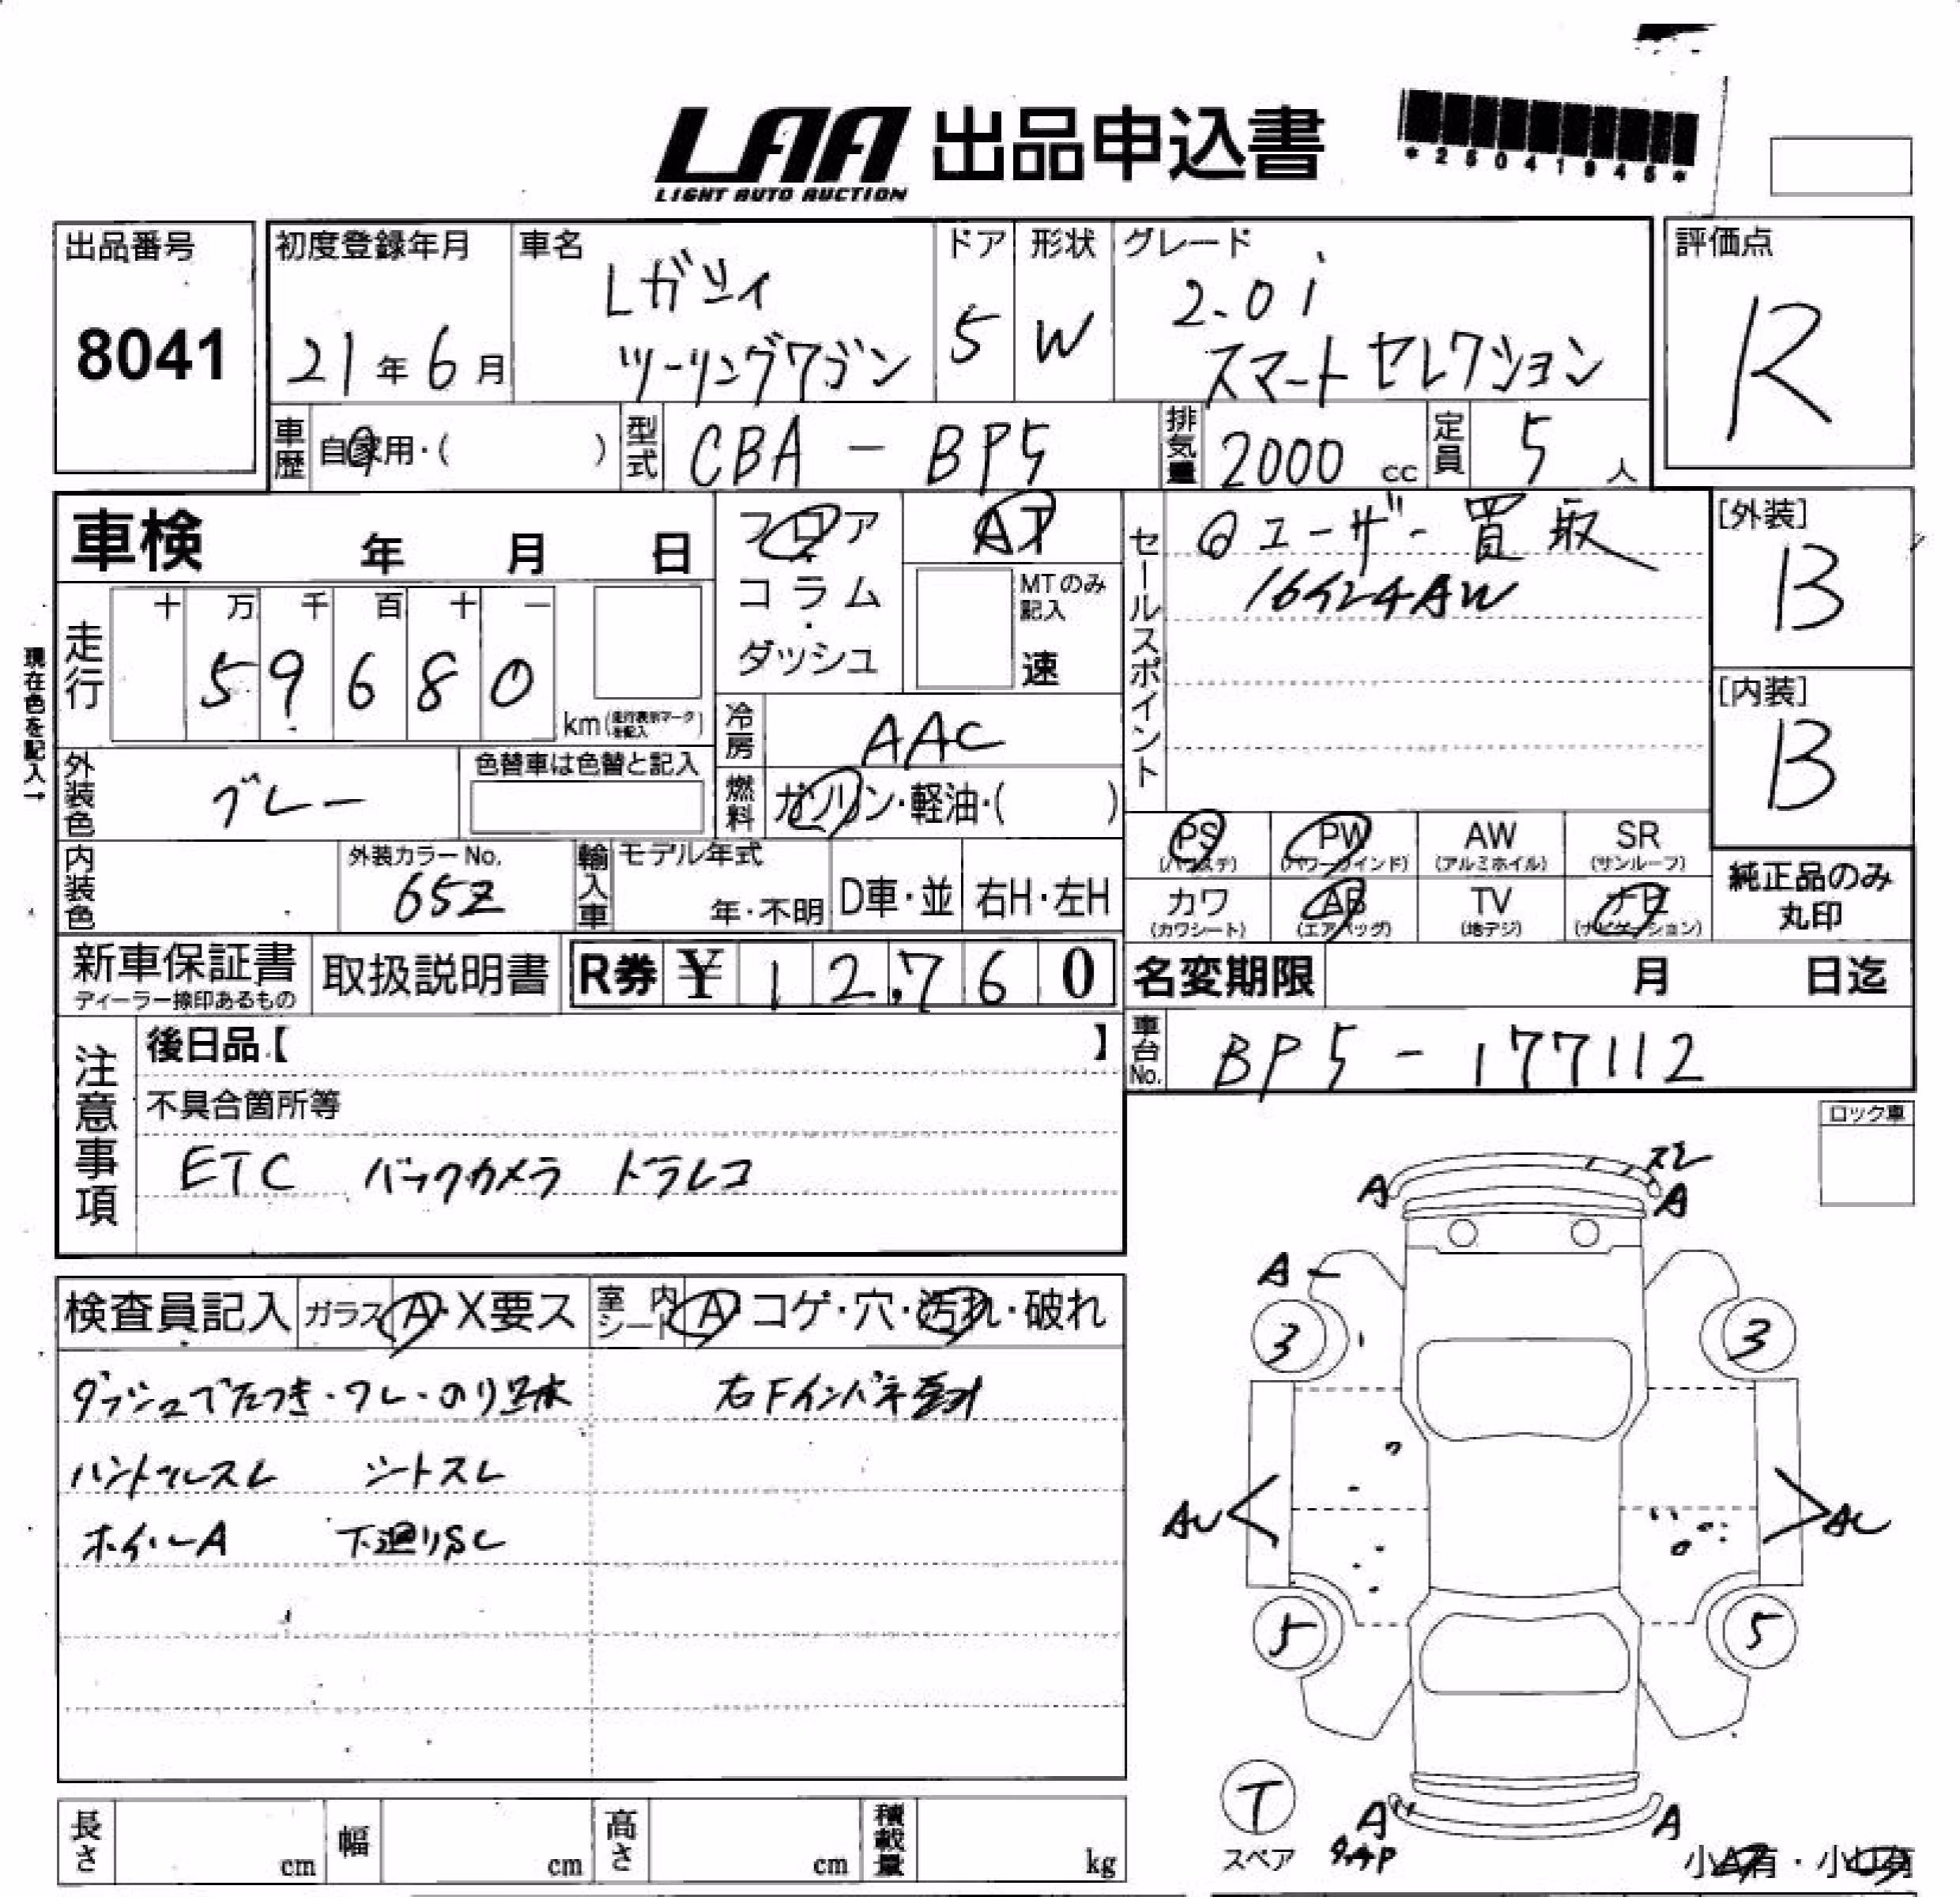 LAA 出品申込書
LIGHT AUTO AUCTION
*25041945*
出品番号
8041
初度登録年月
21年6月
車名
Lガツィ
ツーリングワゴン
ドア
5
形状
W
グレード
2.0i
スマートセレクション
評価点
R
車歴
自家用・( )
型式
CBA - BP5
排気量
2000 cc
定員
5 人
車検 年 月 日
フロア
コラム
・
ダッシュ
AT
MTのみ
記入
速
セールスポイント
ユーザー買取
16インチAW
[外装]
B
[内装]
B
現在色を記入→
走行
十 万 千 百 十 一
5 9 6 8 0
km(走行表示マークを記入)
冷房
AAC
外装色
グレー
色替車は色替と記入
燃料
ガソリン・軽油・( )
内装色
外装カラーNo.
652
輸入車
モデル年式
年・不明
D車・並
右H・左H
PS
(パワステ)
PW
(パワーウインド)
AW
(アルミホイル)
SR
(サンルーフ)
カワ
(カワシート)
AB
(エアバッグ)
TV
(地デジ)
ナビ
(ナビゲーション)
純正品のみ
丸印
新車保証書
ディーラー捺印あるもの
取扱説明書
R券 ¥ 12,760
名変期限 月 日迄
注意事項
後日品【 】
不具合箇所等
ETC バックカメラ ドラレコ
車台No.
BP5-177112
ロック車
検査員記入
ガラス A・X要ス
室内
シート
A・コゲ・穴・汚れ・破れ
右Fインパネ
ハンドルスレ シートスレ
ホイールA 下廻りSC
スレ
A A
A
3 3
AU AU
5 5
T
スペア
A A
小A有・小U有
長さ cm
幅 cm
高さ cm
積載量 kg